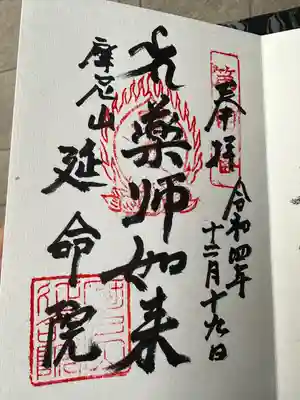 奉拝
令和四年
十二月十九日
藥師如来
摩尼山
延命院